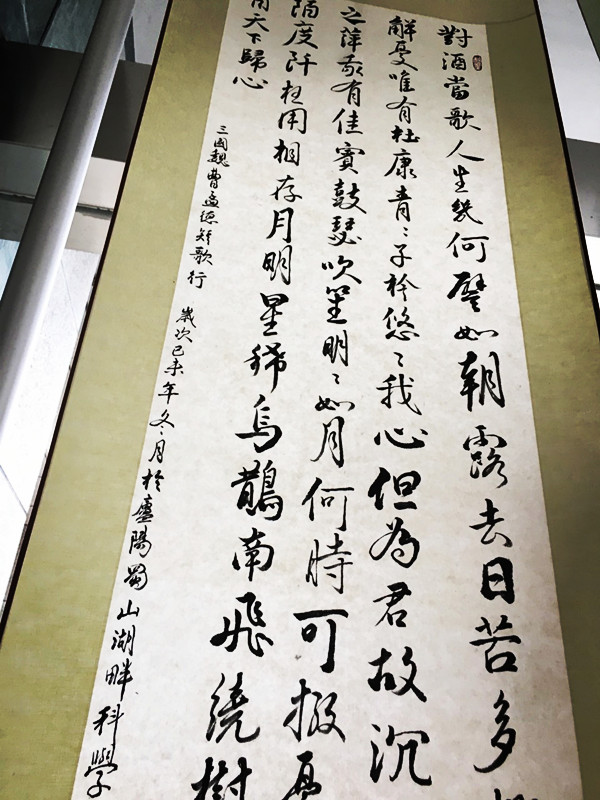 對酒當歌人生幾何譬如朝露去日苦多
解憂唯有杜康青〻子衿悠〻我心但為君故沉
之萍我有佳賓鼓瑟吹笙明〻如月何時可掇憂
陌度阡枉用相存月明星稀烏鵲南飛繞樹
天下歸心
三國魏曹孟德短歌行 歲次己未年冬月於廬陽蜀山湖畔科學